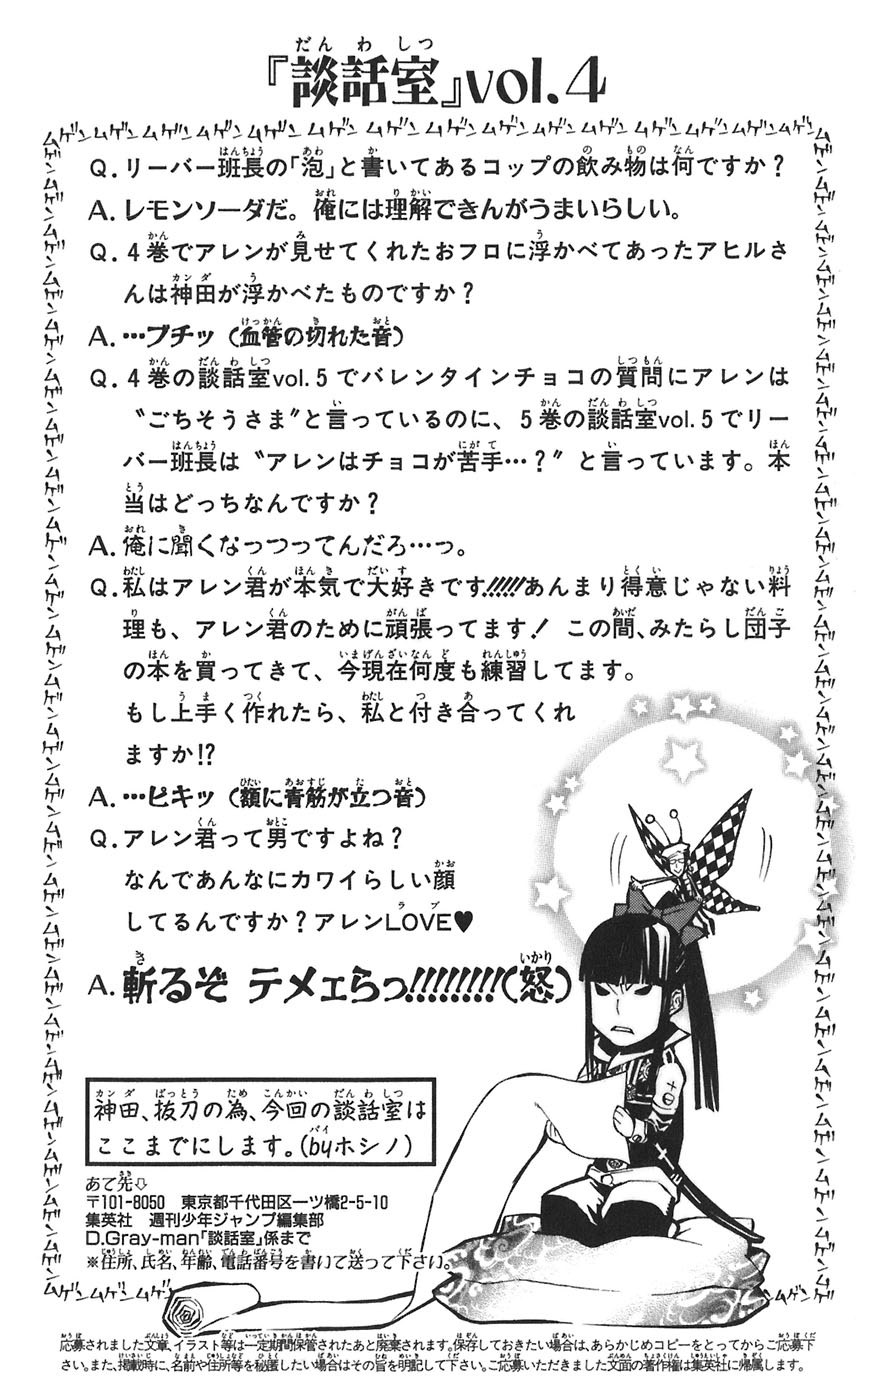 『談話室』vol.4
ムゲンムゲンムゲンムゲンムゲンムゲンムゲンムゲンムゲンムゲンムゲンムゲンムゲンムゲン
Q.リーバー班長の「泡」と書いてあるコップの飲み物は何ですか？
A.レモンソーダだ。俺には理解できんがうまいらしい。
Q.4巻でアレンが見せてくれたおフロに浮かべてあったアヒルさ
んは神田が浮かべたものですか？
A.…ブチッ（血管の切れた音）
Q.4巻の談話室vol.5でバレンタインチョコの質問にアレンは
〝ごちそうさま〟と言っているのに、5巻の談話室vol.5でリー
バー班長は〝アレンはチョコが苦手…？〟と言っています。本
当はどっちなんですか？
A.俺に聞くなっつってんだろ…っ。
Q.私はアレン君が本気で大好きです!!!!!あんまり得意じゃない料
理も、アレン君のために頑張ってます！この間、みたらし団子
の本を買ってきて、今現在何度も練習してます。
もし上手く作れたら、私と付き合ってくれ
ますか!?
A.…ピキッ（額に青筋が立つ音）
Q.アレン君って男ですよね？
なんであんなにカワイらしい顔
してるんですか？アレンLOVE♥
A.斬るぞ テメェらっ!!!!!!!!（怒）
神田、抜刀の為、今回の談話室は
ここまでにします。（byホシノ）
あて先⇩
〒101-8050 東京都千代田区一ツ橋2-5-10
集英社 週刊少年ジャンプ編集部
D.Gray-man「談話室」係まで
※住所、氏名、年齢、電話番号を書いて送って下さい。
応募されました文章、イラスト等は一定期間保管されたあと廃棄されます。保存しておきたい場合は、あらかじめコピーをとってからご応募下
さい。また、掲載時に、名前や住所等を秘匿したい場合はその旨を明記して下さい。ご応募いただきました文面の著作権は集英社に帰属します。